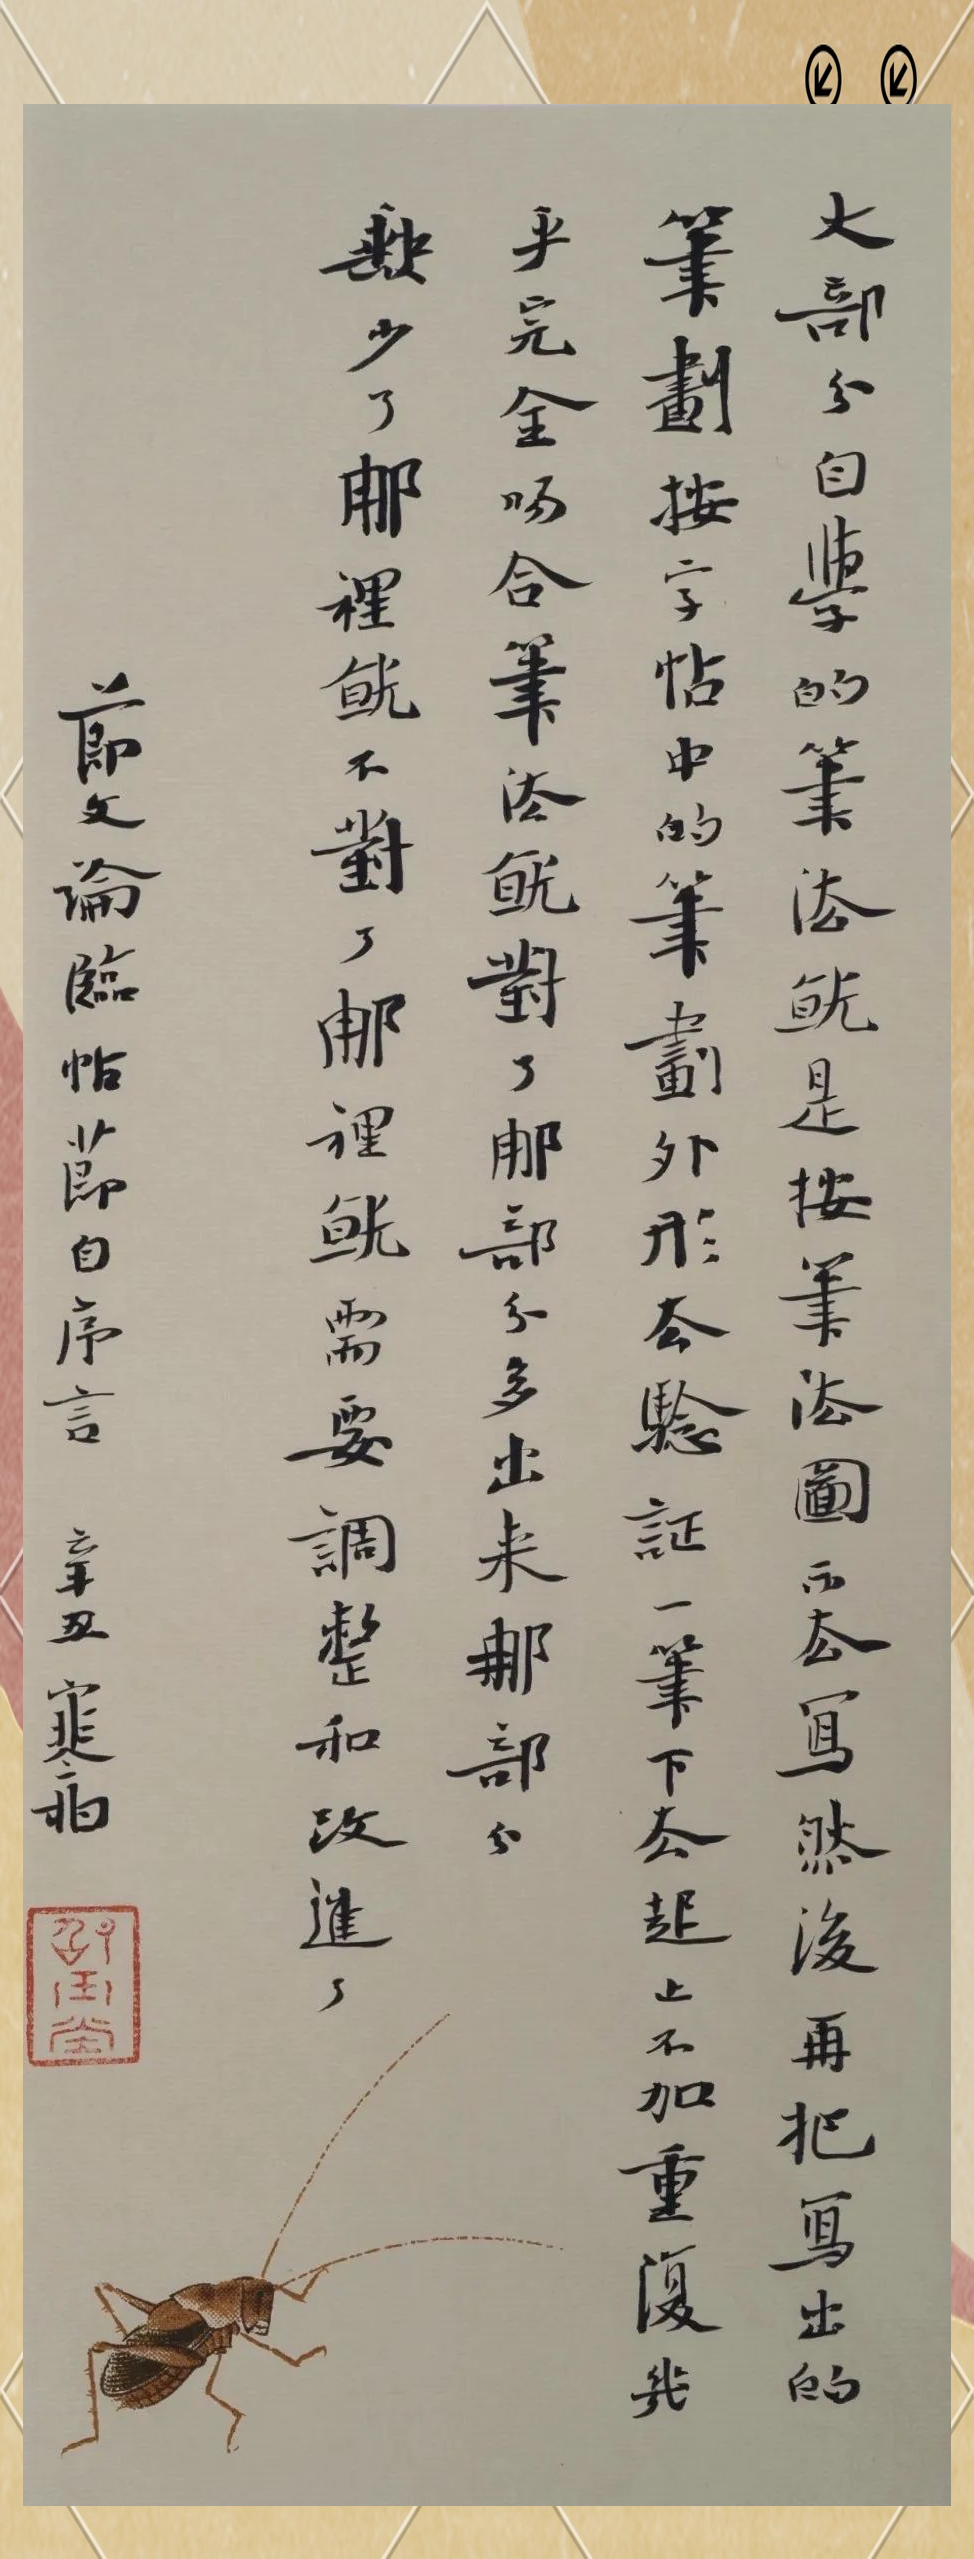 大部分自學的筆法就是按筆法圖而去寫然後再把寫出的
筆劃按字帖中的筆劃外形去驗証一筆下去起上不加重復幾
乎完全吻合筆法就對了那部分多出来那部分
缺少了那裡就不對了那裡就需要調整和改進了
節文論臨帖節自序言 辛丑寒